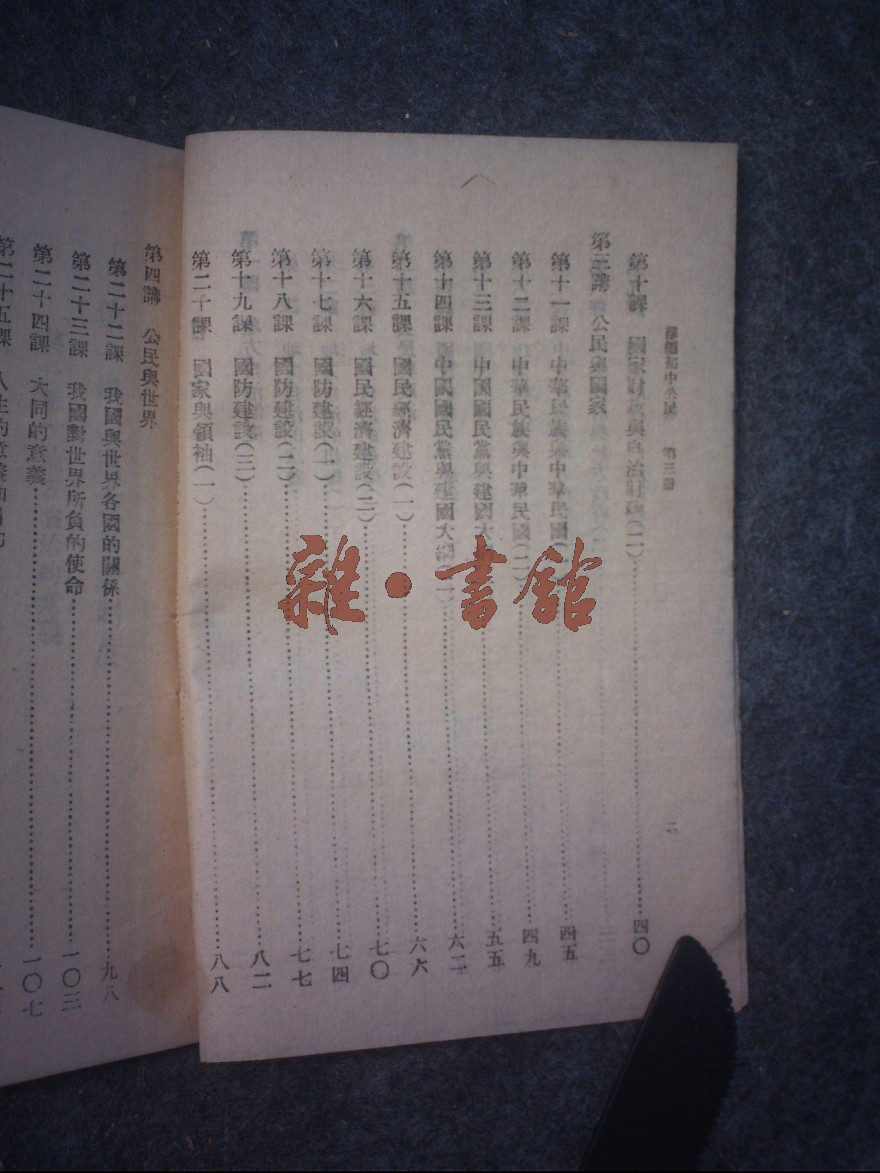 初中公民 第三册
二
第十課 國家組織與自治組織(二)……四〇
第三講 公民與國家
第十一課 中華民族與中華民國(一)……四五
第十二課 中華民族與中華民國(二)……四九
第十三課 中國國民黨與建國大……五五
第十四課 中國國民黨與建國大綱(二)……六二
第十五課 國民經濟建設(一)……六六
第十六課 國民經濟建設(二)……七〇
第十七課 國防建設(一)……七四
第十八課 國防建設(二)……七七
第十九課 國防建設(三)……八二
第二十課 國家與領袖(一)……八八
第四講 公民與世界
第二十二課 我國與世界各國的關係……九八
第二十三課 我國對世界所負的使命……一〇三
第二十四課 大同的意義……一〇七
第二十五課 人生的意義
雜·書館